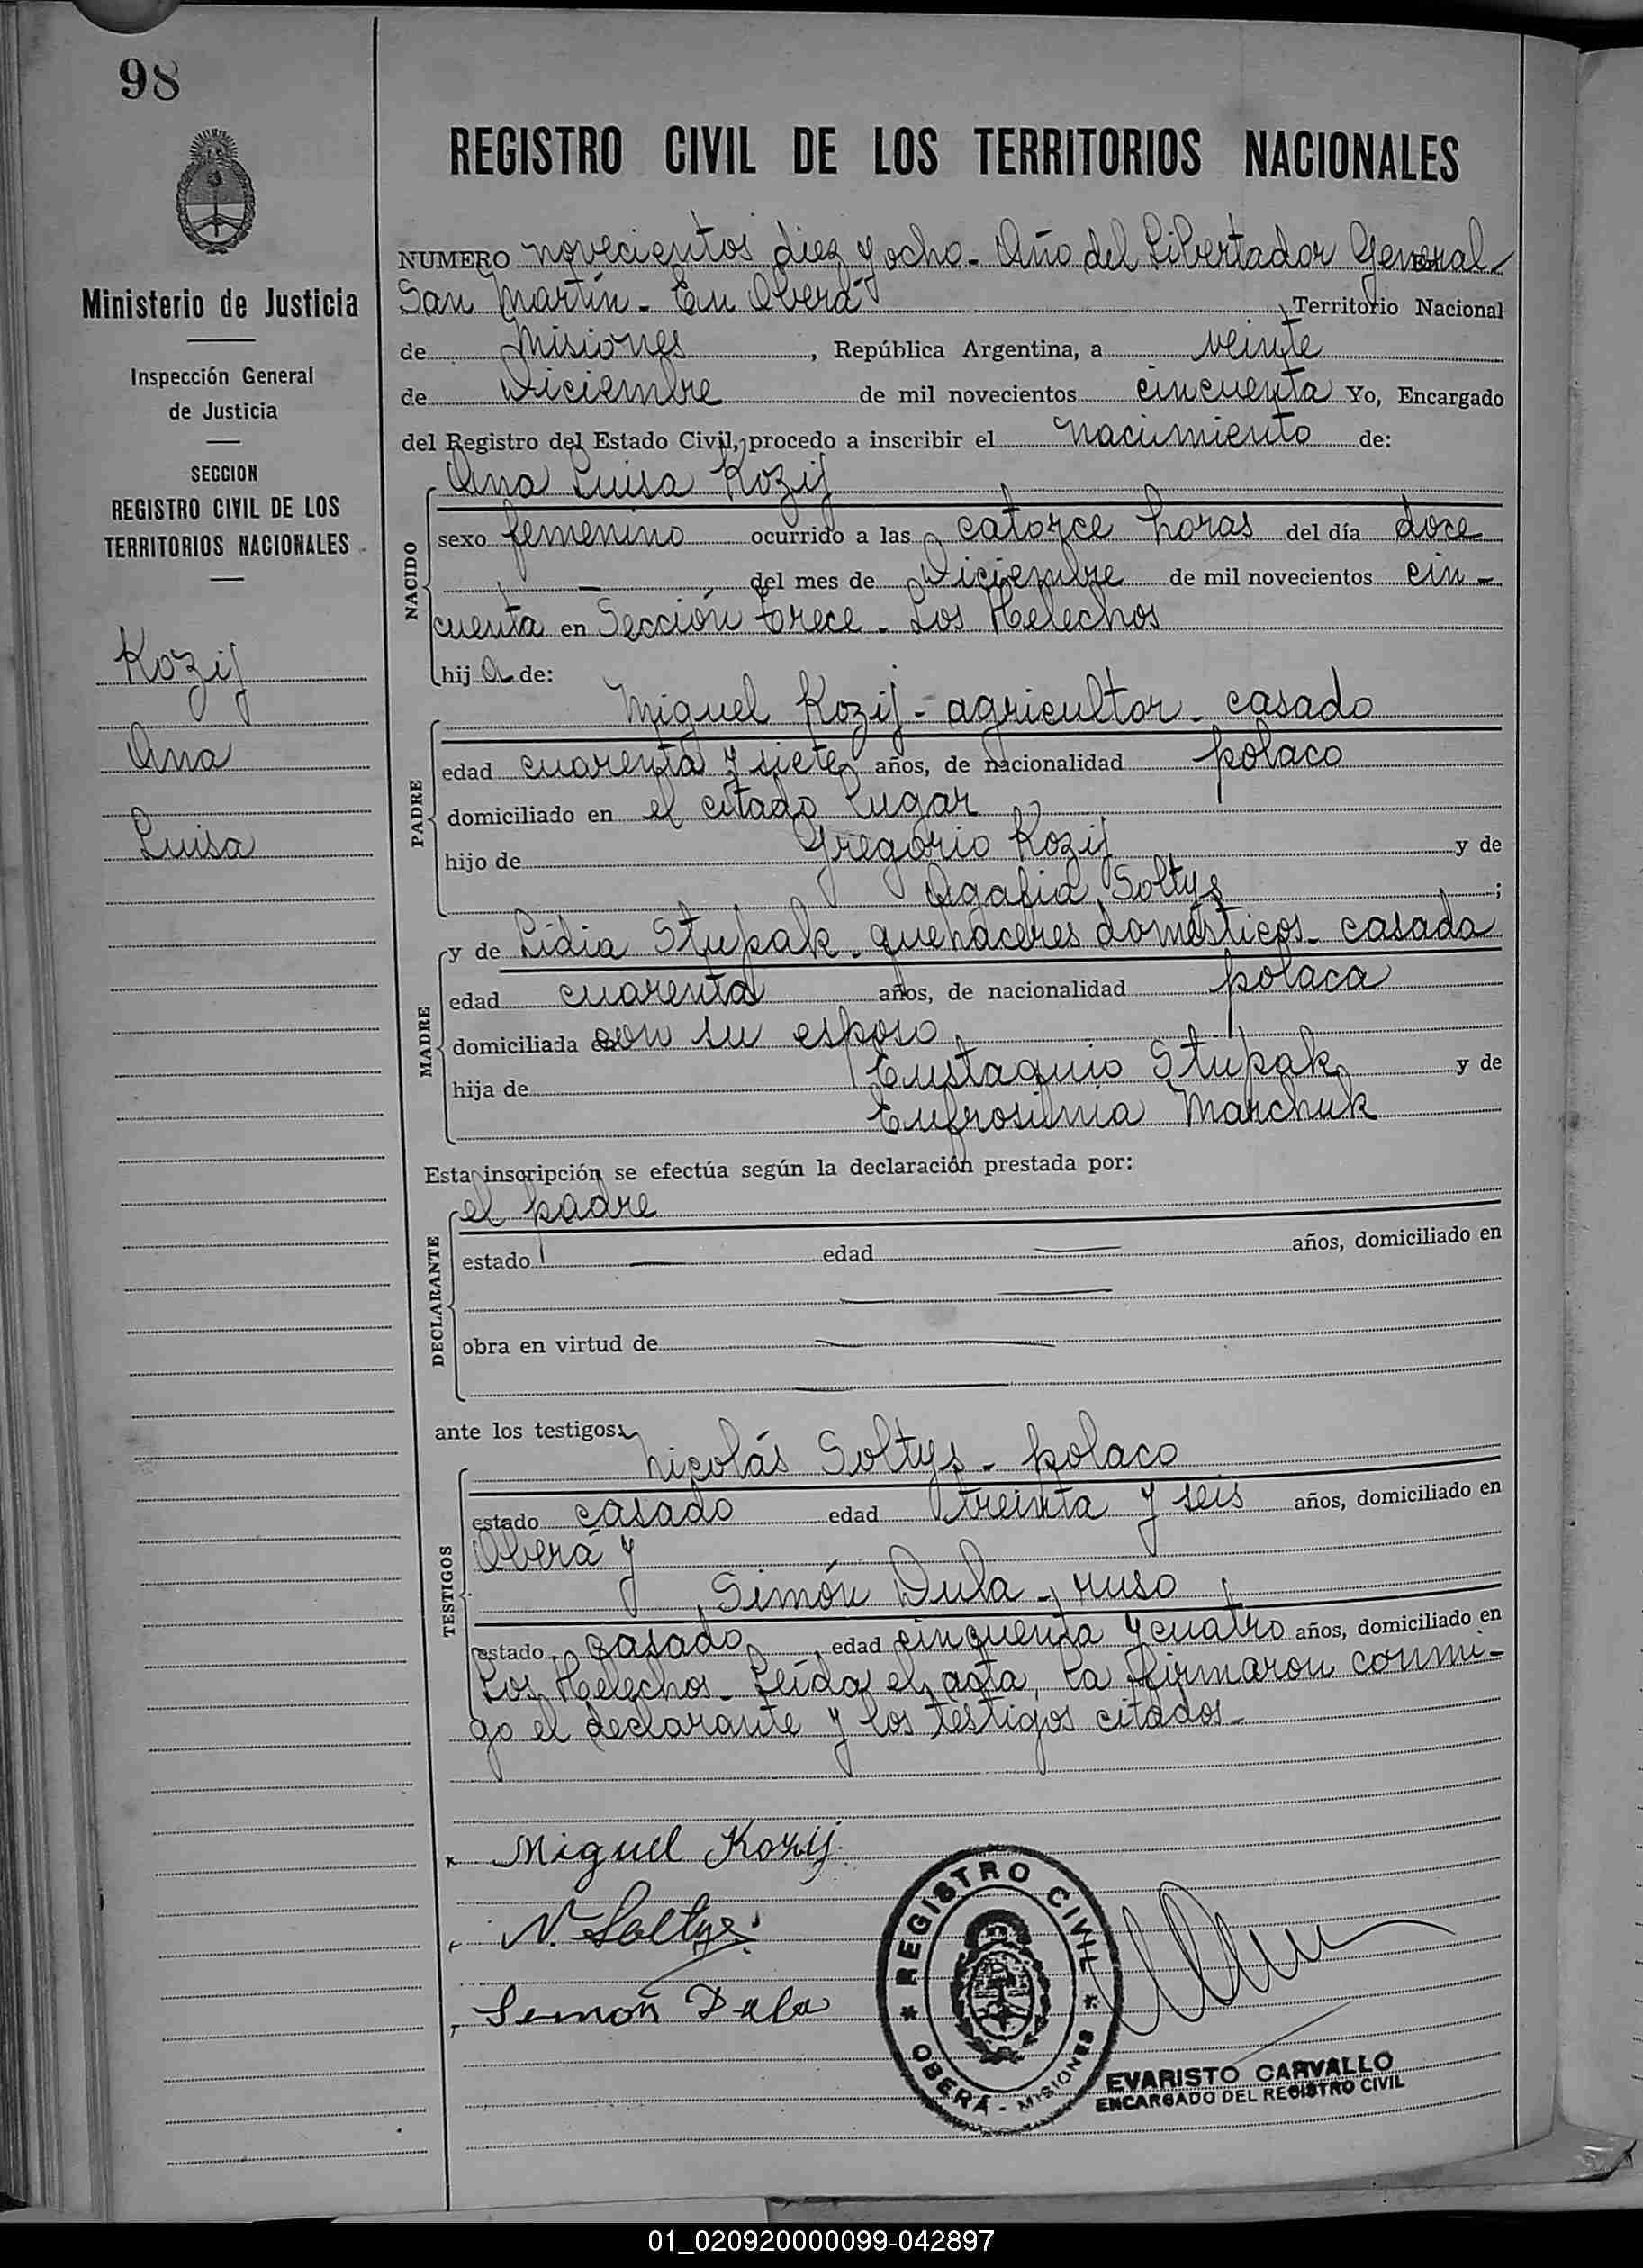 98
Ministerio de Justicia
Inspección General
de Justicia
SECCION
REGISTRO CIVIL DE LOS
TERRITORIOS NACIONALES
Kozij
Ana
Luisa
REGISTRO CIVIL DE LOS TERRITORIOS NACIONALES
NUMERO novecientos diez y ocho - Año del Libertador General
San Martín - En Oberá , Territorio Nacional
de Misiones , República Argentina, a veinte
de Diciembre de mil novecientos cincuenta Yo, Encargado
del Registro del Estado Civil, procedo a inscribir el Nacimiento de:
NACIDO
Ana Luisa Kozij
sexo femenino ocurrido a las catorce horas del día doce
— del mes de Diciembre de mil novecientos cin-
cuenta en Sección trece - Los Helechos
hij a de:
PADRE
Miguel Kozij - agricultor - casado
edad cuarenta y siete años, de nacionalidad polaco
domiciliado en el citado lugar
hijo de Gregorio Kozij y de
Agafia Soltys ;
MADRE
y de Lidia Stupak - quehaceres domésticos - casada
edad cuarenta años, de nacionalidad polaca
domiciliada con su esposo
hija de Eustaquio Stupak y de
Eufrosinia Marchuk
Esta inscripción se efectúa según la declaración prestada por:
DECLARANTE
el padre
estado — edad — años, domiciliado en
— —
obra en virtud de —
—
ante los testigos:
TESTIGOS
Nicolás Soltys - polaco
estado casado edad treinta y seis años, domiciliado en
Oberá y
Simón Dula - ruso
estado casado, edad cincuenta y cuatro años, domiciliado en
Los Helechos - Leída el acta, la firmaron conmi-
go el declarante y los testigos citados -
Miguel Kozij
N. Soltys
Semon Dula
REGISTRO CIVIL
OBERÁ - MISIONES
EVARISTO CARVALLO
ENCARGADO DEL REGISTRO CIVIL
01_020920000099-042897